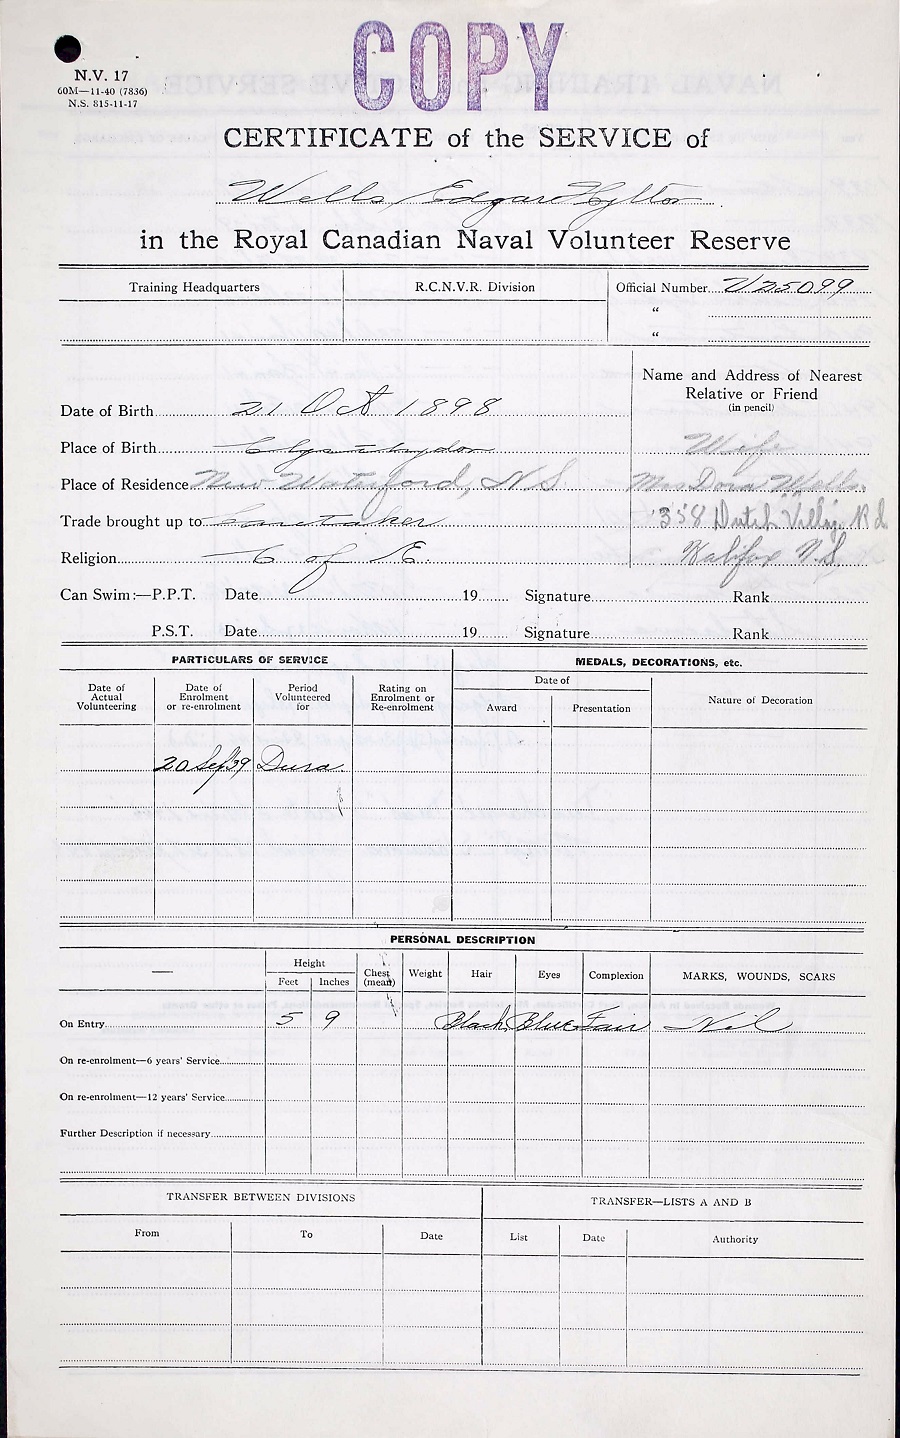 COPY
N.V. 17
60M—11-40 (7836)
N.S. 815-11-17
CERTIFICATE of the SERVICE of
Wells, Edgar Hylton
in the Royal Canadian Naval Volunteer Reserve
Training Headquarters R.C.N.V.R. Division Official Number V25099
"
"
Name and Address of Nearest
Relative or Friend
(in pencil)
Date of Birth 21 Oct 1898
Place of Birth Wife
Place of Residence New Waterford, N.S. Mrs Dora Wells
Trade brought up to 358 Dutch Village Rd
Religion C of E. Halifax N.S.
Can Swim:—P.P.T. Date 19 Signature Rank
P.S.T. Date 19 Signature Rank
PARTICULARS OF SERVICE MEDALS, DECORATIONS, etc.
Date of Actual Volunteering Date of Enrolment or re-enrolment Period Volunteered for Rating on Enrolment or Re-enrolment Date of Award Presentation Nature of Decoration
20 Sep 39 Dura
PERSONAL DESCRIPTION
— Height Feet Inches Chest (mean) Weight Hair Eyes Complexion MARKS, WOUNDS, SCARS
On Entry 5 9 Black Blue Fair Nil
On re-enrolment—6 years' Service
On re-enrolment—12 years' Service
Further Description if necessary
TRANSFER BETWEEN DIVISIONS TRANSFER—LISTS A AND B
From To Date List Date Authority